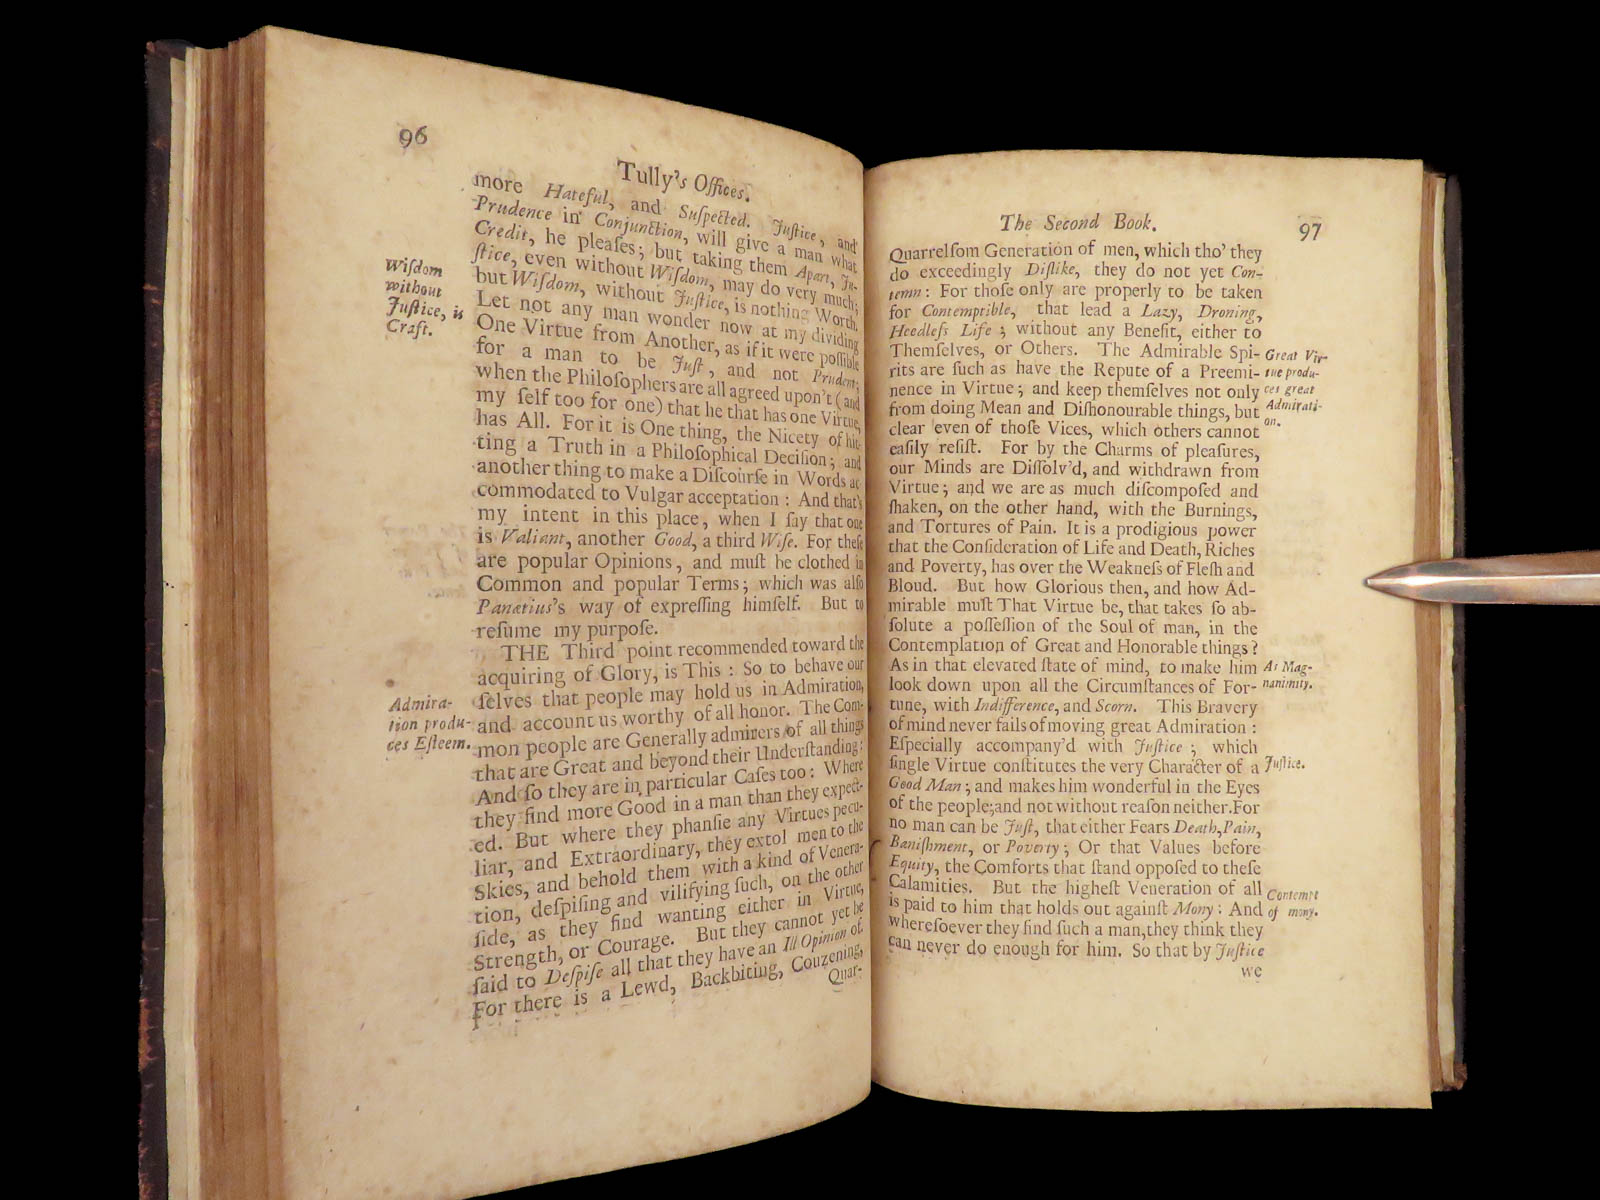 96
Tully's Offices.
more Hateful, and Suſpected. Juſtice, and
Prudence in Conjunction, will give a man what
Credit, he pleaſes; but taking them Apart, Ju-
ſtice, even without Wiſdom, may do very much;
but Wiſdom, without Juſtice, is nothing Worth.
Let not any man wonder now at my dividing
One Virtue from Another, as if it were poſſible
for a man to be Juſt, and not Prudent;
when the Philoſophers are all agreed upon't (and
my ſelf too for one) that he that has one Virtue,
has All. For it is One thing, the Nicety of hit-
ting a Truth in a Philoſophical Deciſion; and
another thing to make a Diſcourſe in Words ac-
commodated to Vulgar acceptation: And that's
my intent in this place, when I ſay that one
is Valiant, another Good, a third Wiſe. For theſe
are popular Opinions, and muſt be clothed in
Common and popular Terms; which was alſo
Panætius's way of expreſſing himſelf. But to
reſume my purpoſe.
THE Third point recommended toward the
acquiring of Glory, is This: So to behave our
ſelves that people may hold us in Admiration,
and account us worthy of all honor. The Com-
mon people are Generally admirers of all things
that are Great and beyond their Underſtanding:
And ſo they are in particular Caſes too: Where
they find more Good in a man than they expect-
ed. But where they phanſie any Virtues pecu-
liar, and Extraordinary, they extol men to the
Skies, and behold them with a kind of Venera-
tion, deſpiſing and vilifying ſuch, on the other
ſide, as they find wanting either in Virtue,
Strength, or Courage. But they cannot yet be
ſaid to Deſpiſe all that they have an Ill Opinion of.
For there is a Lewd, Backbiting, Couzening,
Quar-
Wiſdom
without
Juſtice, is
Craft.
Admira-
tion produ-
ces Eſteem.
The Second Book.
97
Quarrelſom Generation of men, which tho' they
do exceedingly Diſlike, they do not yet Con-
temn: For thoſe only are properly to be taken
for Contemptible, that lead a Lazy, Droning,
Heedleſs Life; without any Benefit, either to
Themſelves, or Others. The Admirable Spi-
rits are ſuch as have the Repute of a Preemi-
nence in Virtue; and keep themſelves not only
from doing Mean and Diſhonourable things, but
clear even of thoſe Vices, which others cannot
eaſily reſiſt. For by the Charms of pleaſures,
our Minds are Diſſolv'd, and withdrawn from
Virtue; and we are as much diſcompoſed and
ſhaken, on the other hand, with the Burnings,
and Tortures of Pain. It is a prodigious power
that the Conſideration of Life and Death, Riches
and Poverty, has over the Weakneſs of Fleſh and
Bloud. But how Glorious then, and how Ad-
mirable muſt That Virtue be, that takes ſo ab-
ſolute a poſſeſſion of the Soul of man, in the
Contemplation of Great and Honorable things?
As in that elevated ſtate of mind, to make him
look down upon all the Circumſtances of For-
tune, with Indifference, and Scorn. This Bravery
of mind never fails of moving great Admiration:
Eſpecially accompany'd with Juſtice; which
ſingle Virtue conſtitutes the very Character of a
Good Man; and makes him wonderful in the Eyes
of the people; and not without reaſon neither. For
no man can be Juſt, that either Fears Death, Pain,
Baniſhment, or Poverty; Or that Values before
Equity, the Comforts that ſtand oppoſed to theſe
Calamities. But the higheſt Veneration of all
is paid to him that holds out againſt Mony: And
whereſoever they find ſuch a man, they think they
can never do enough for him. So that by Juſtice
we
Great Vir-
tue produ-
ces great
Admirati-
on.
As Mag-
nanimity.
Juſtice.
Contempt
of mony.